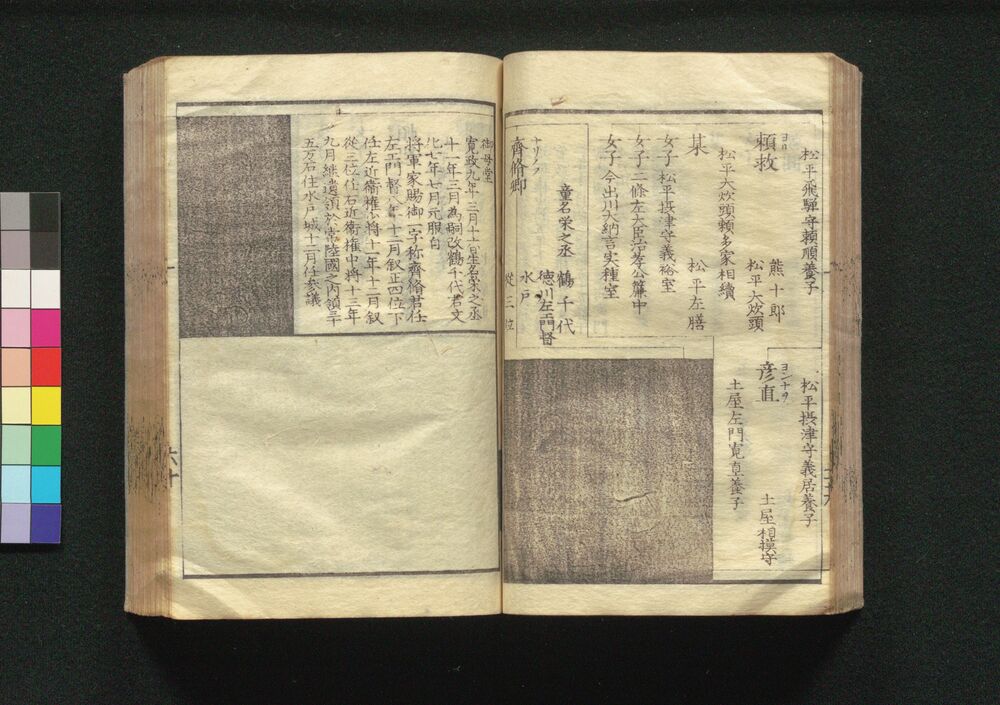 松平飛騨守頼順養子
ヨリ
頼救
熊十郎
松平大炊頭
松平大炊頭頼多家相續
某
松平左膳
女子 松平摂津守義裕室
女子 二條左大臣治孝公簾中
女子 今出川大納言実種室
松平摂津守義居養子
彦直
土屋相模守
土屋左門寛直養子
ナリノフ
齊脩卿
童名栄之丞
鶴千代
徳川左衛門督
水戸
從三位
御母堂
寛政九年三月十六日生名栄之丞
十一年三月為嗣改鶴千代君文
化七年七月元服自
將軍家賜御一字称齊脩君任
左衛門督八年十二月叙正四位下
任左近衛権少將十一年十二月叙
從三位任右近衛権中將十三年
九月継遺領於常陸國之内領三十
五万石住水戸城十二月任参議
六十